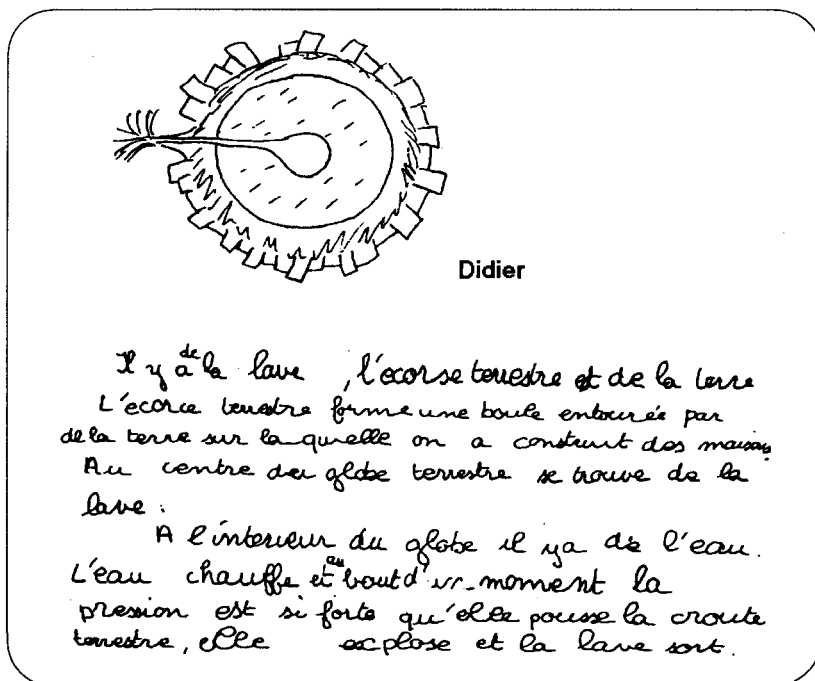 Didier
Il y a de la lave, l'écorse terrestre et de la terre
L'écorce terrestre forme une boule entourée par
de la terre sur la quelle on a construit des maisons
Au centre du globe terrestre se trouve de la
lave.
A l'interieur du globe il ya de l'eau.
L'eau chauffe et au bout d'un moment la
pression est si forte qu'elle pousse la croute
terrestre, elle explose et la lave sort.